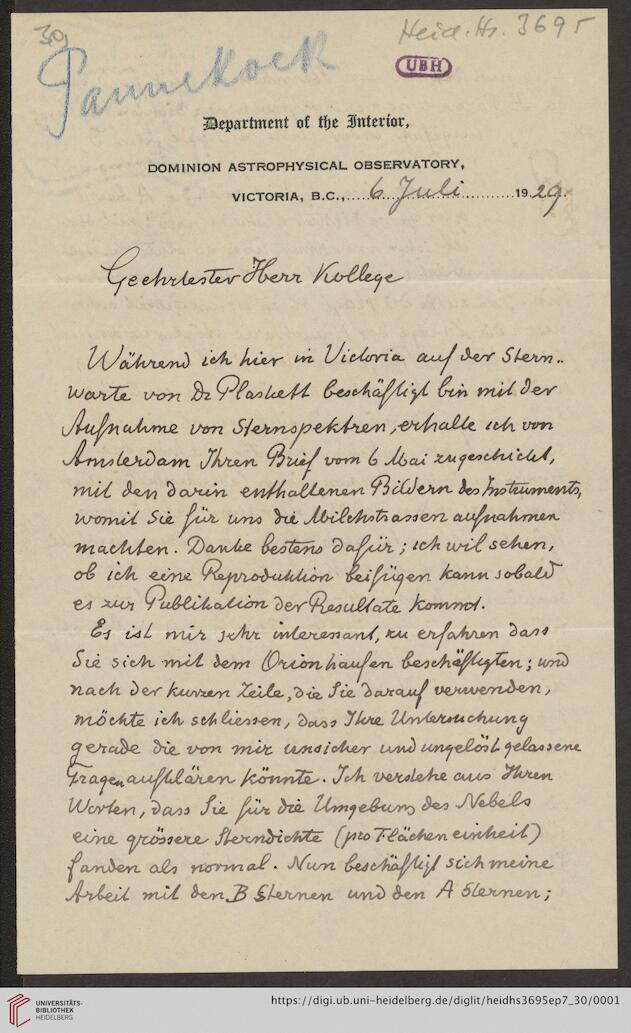 30
Heid. Hs. 3695
Pannekoek
UBH
Department of the Interior,
DOMINION ASTROPHYSICAL OBSERVATORY,
VICTORIA, B.C., 6 Juli 1929.
Geehrtester Herr Kollege
Während ich hier in Victoria auf der Stern-
warte von Dr Plaskett beschäftigt bin mit der
Aufnahme von Sternspektren, erhalte ich von
Amsterdam Ihren Brief vom 6 Mai zugeschickt,
mit den darin enthaltenen Bildern des Instruments,
womit Sie für uns die Milchstrassenaufnahmen
machten. Danke bestens dafür; ich wil sehen,
ob ich eine Reproduktion beifügen kann sobald
es zur Publikation der Resultate kommt.
Es ist mir sehr interessant, zu erfahren dass
Sie sich mit dem Orionhaufen beschäftigten; und
nach der kurzen Zeile, die Sie darauf verwenden,
möchte ich schliessen, dass Ihre Untersuchung
gerade die von mir unsicher und ungelöst gelassene
Fragen aufklären könnte. Ich verstehe aus Ihren
Worten, dass Sie für die Umgebung des Nebels
eine grössere Sterndichte (pro Flächeneinheit)
fanden als normal. Nun beschäftigt sich meine
Arbeit mit den B Sternen und den A Sternen;
UNIVERSITÄTS-
BIBLIOTHEK
HEIDELBERG
https://digi.ub.uni-heidelberg.de/diglit/heidhs3695ep7_30/0001